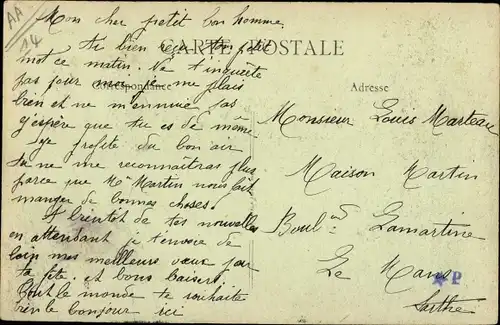 AA
14
CARTE POSTALE
Correspondance
Adresse
Mon cher petit bon homme,
J'ai bien reçu ton petit
mot ce matin. Ne t'inquiète
pas pour moi, je me plais
bien et ne m'ennuie pas
j'espère que tu es de même.
Je profite du bon air
tu ne me reconnaîtras plus
parce que Me Martin nous fait
manger de bonnes choses.
A bientôt de tes nouvelles
en attendant je t'envoie de
loin mes meilleurs vœux par
ta fête. et bons baisers.
Tout le monde te souhaite
bien le bonjour ici
Monsieur Louis Marteau
Maison Martin
Boulnd Lamartine
Le Mans
Sarthe
P